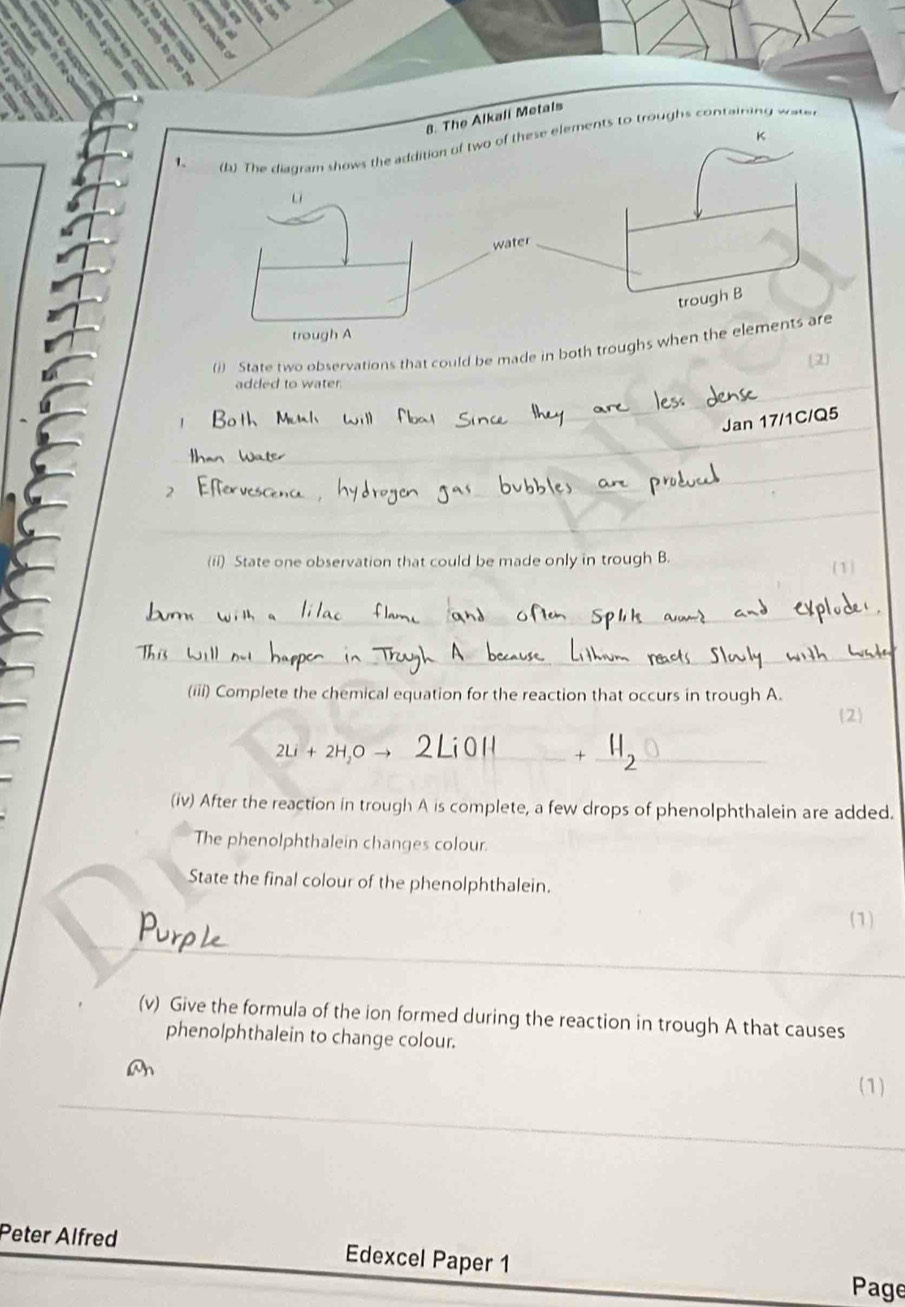 8. The Alkali Metals
1. (b) The diagram shows the addition of two of these elements to troughs containing water
Li
K
water
trough A
trough B
(i) State two observations that could be made in both troughs when the elements are
added to water.
(2)
1 Both Metals will float since they are less dense
Jan 17/1C/Q5
than water
2 Effervescence, hydrogen gas bubbles are produced
(ii) State one observation that could be made only in trough B.
(1)
burn with a lilac flame and often splits around and explodes.
This will not happen in Trough A because Lithium reacts slowly with water
(iii) Complete the chemical equation for the reaction that occurs in trough A.
(2)
2Li + 2H₂O → 2LiOH + H₂
(iv) After the reaction in trough A is complete, a few drops of phenolphthalein are added.
The phenolphthalein changes colour.
State the final colour of the phenolphthalein.
(1)
Purple
(v) Give the formula of the ion formed during the reaction in trough A that causes
phenolphthalein to change colour.
(1)
Peter Alfred
Edexcel Paper 1
Page
Dr. Peter Alfred